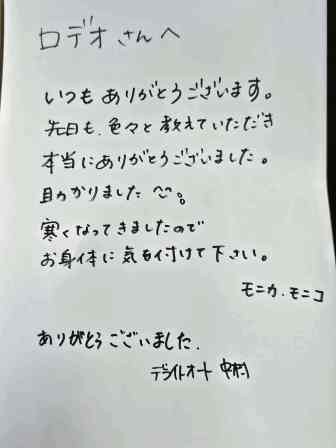 ロデオさんへ
いつもありがとうございます。
先日も、色々と教えていただき
本当にありがとうございました。
助かりました ^^。
寒くなってきましたので
お身体に気を付けて下さい。
モニカ.モニコ
ありがとうございました.
デライトオート 中村